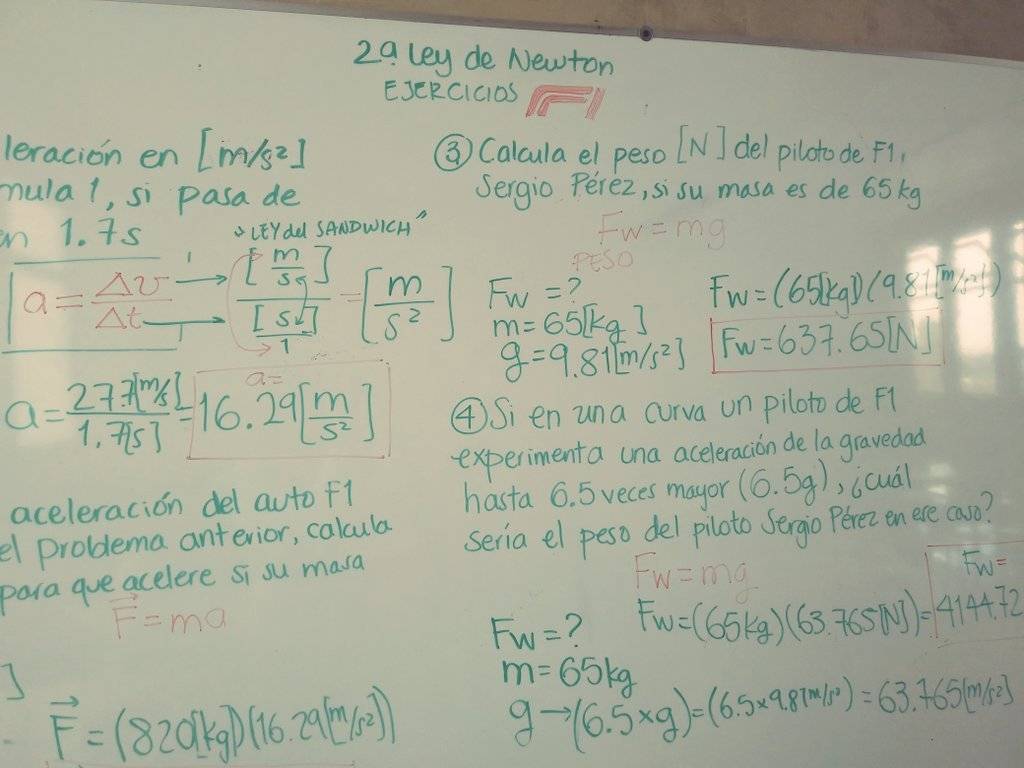 2ª Ley de Newton
EJERCICIOS F1
leración en [m/s²]
mula 1, si pasa de
en 1.7s
"LEY del SANDWICH"
a = Δv/Δt → [m/s]/[s]/1 = [m/s²]
a = 27.7[m/s]/1.7[s] =
a =
16.29[m/s²]
aceleración del auto F1
el problema anterior, calcula
para que acelere si su masa
F = ma
]
F = (820[kg])(16.29[m/s²])
③ Calcula el peso [N] del piloto de F1,
Sergio Pérez, si su masa es de 65 kg
Fw = mg
PESO
Fw = ?
m = 65[kg]
g = 9.81[m/s²]
Fw = (65[kg])(9.81[m/s²])
Fw = 637.65[N]
④ Si en una curva un piloto de F1
experimenta una aceleración de la gravedad
hasta 6.5 veces mayor (6.5g), ¿cuál
sería el peso del piloto Sergio Pérez en ese caso?
Fw = mg
Fw = (65kg)(63.765[N]) =
Fw =
4144.72
Fw = ?
m = 65kg
g → (6.5 × g) = (6.5 × 9.81m/s²) = 63.765[m/s²]